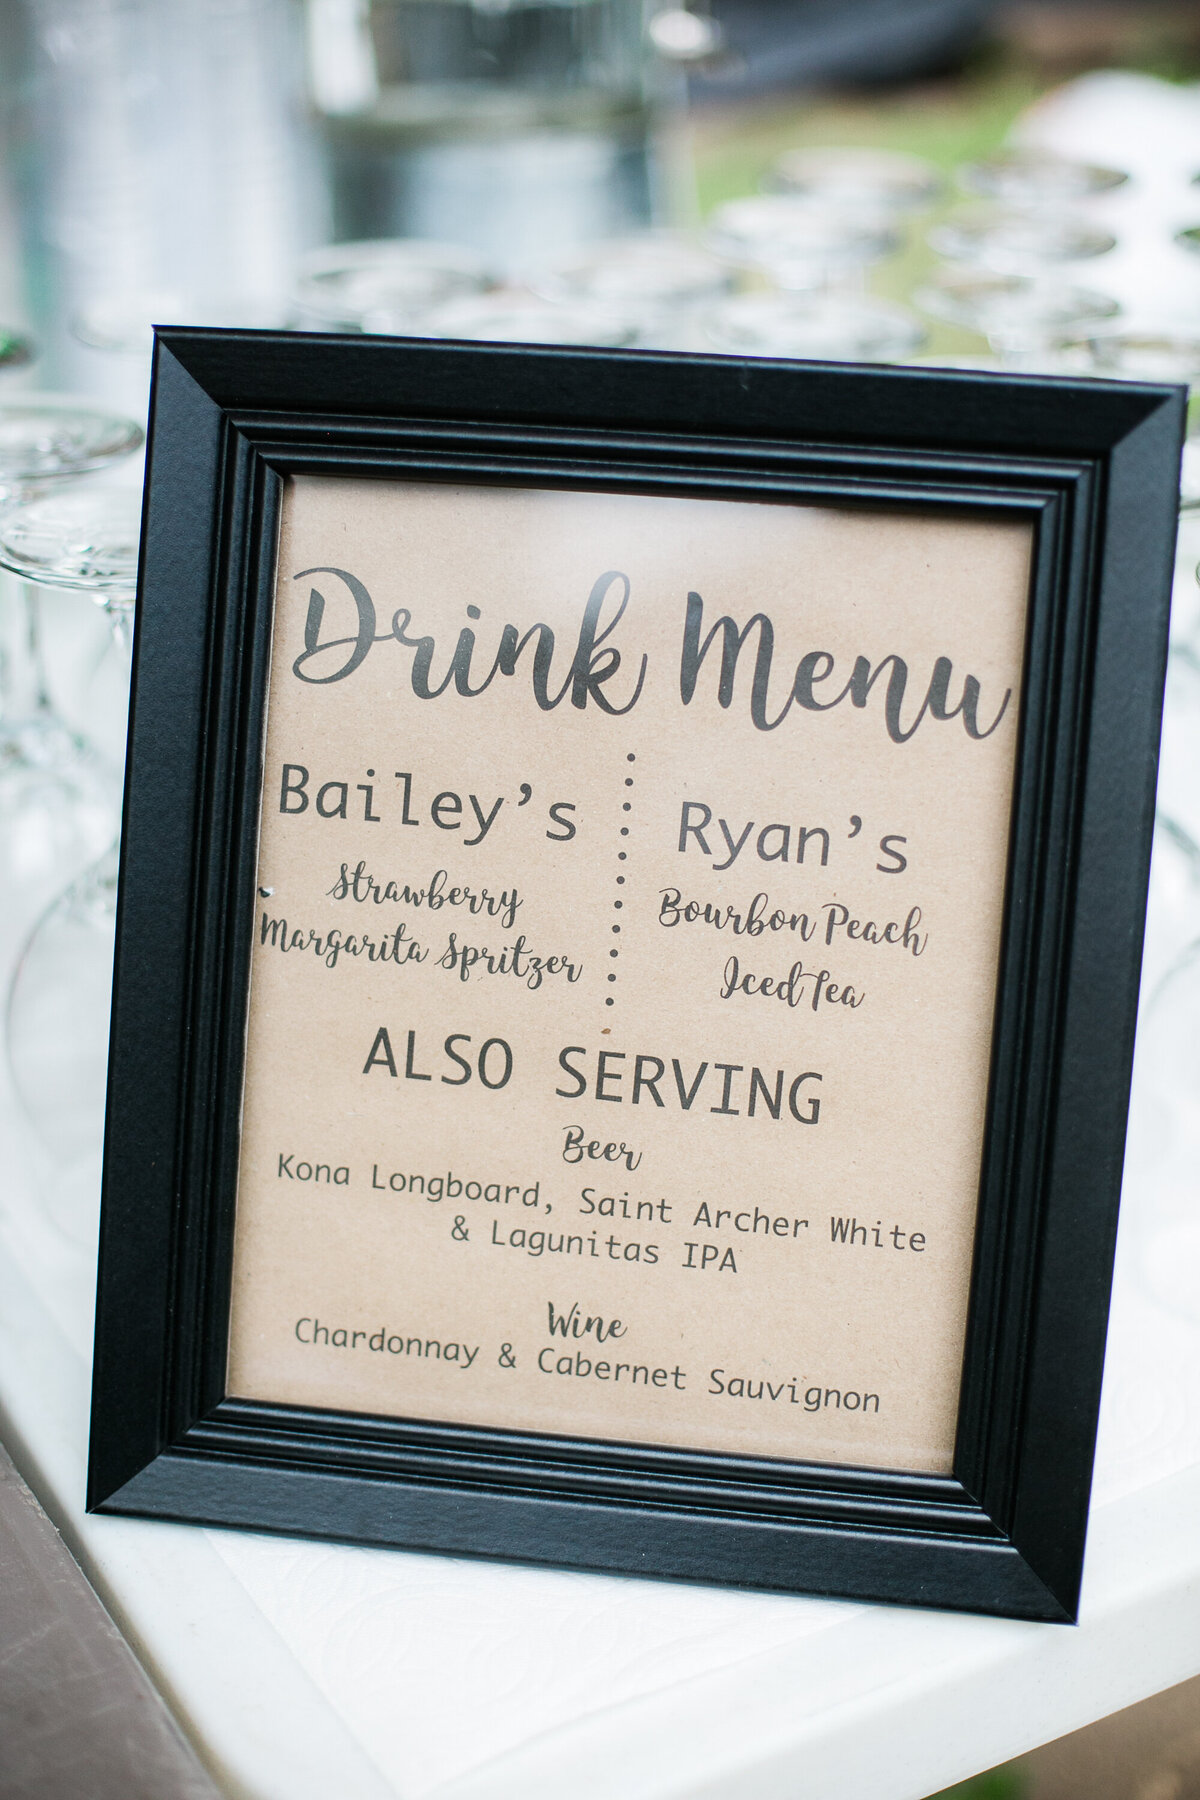 Drink Menu
Bailey's
Strawberry
Margarita Spritzer
Ryan's
Bourbon Peach
Iced Tea
ALSO SERVING
Beer
Kona Longboard, Saint Archer White
& Lagunitas IPA
Wine
Chardonnay & Cabernet Sauvignon